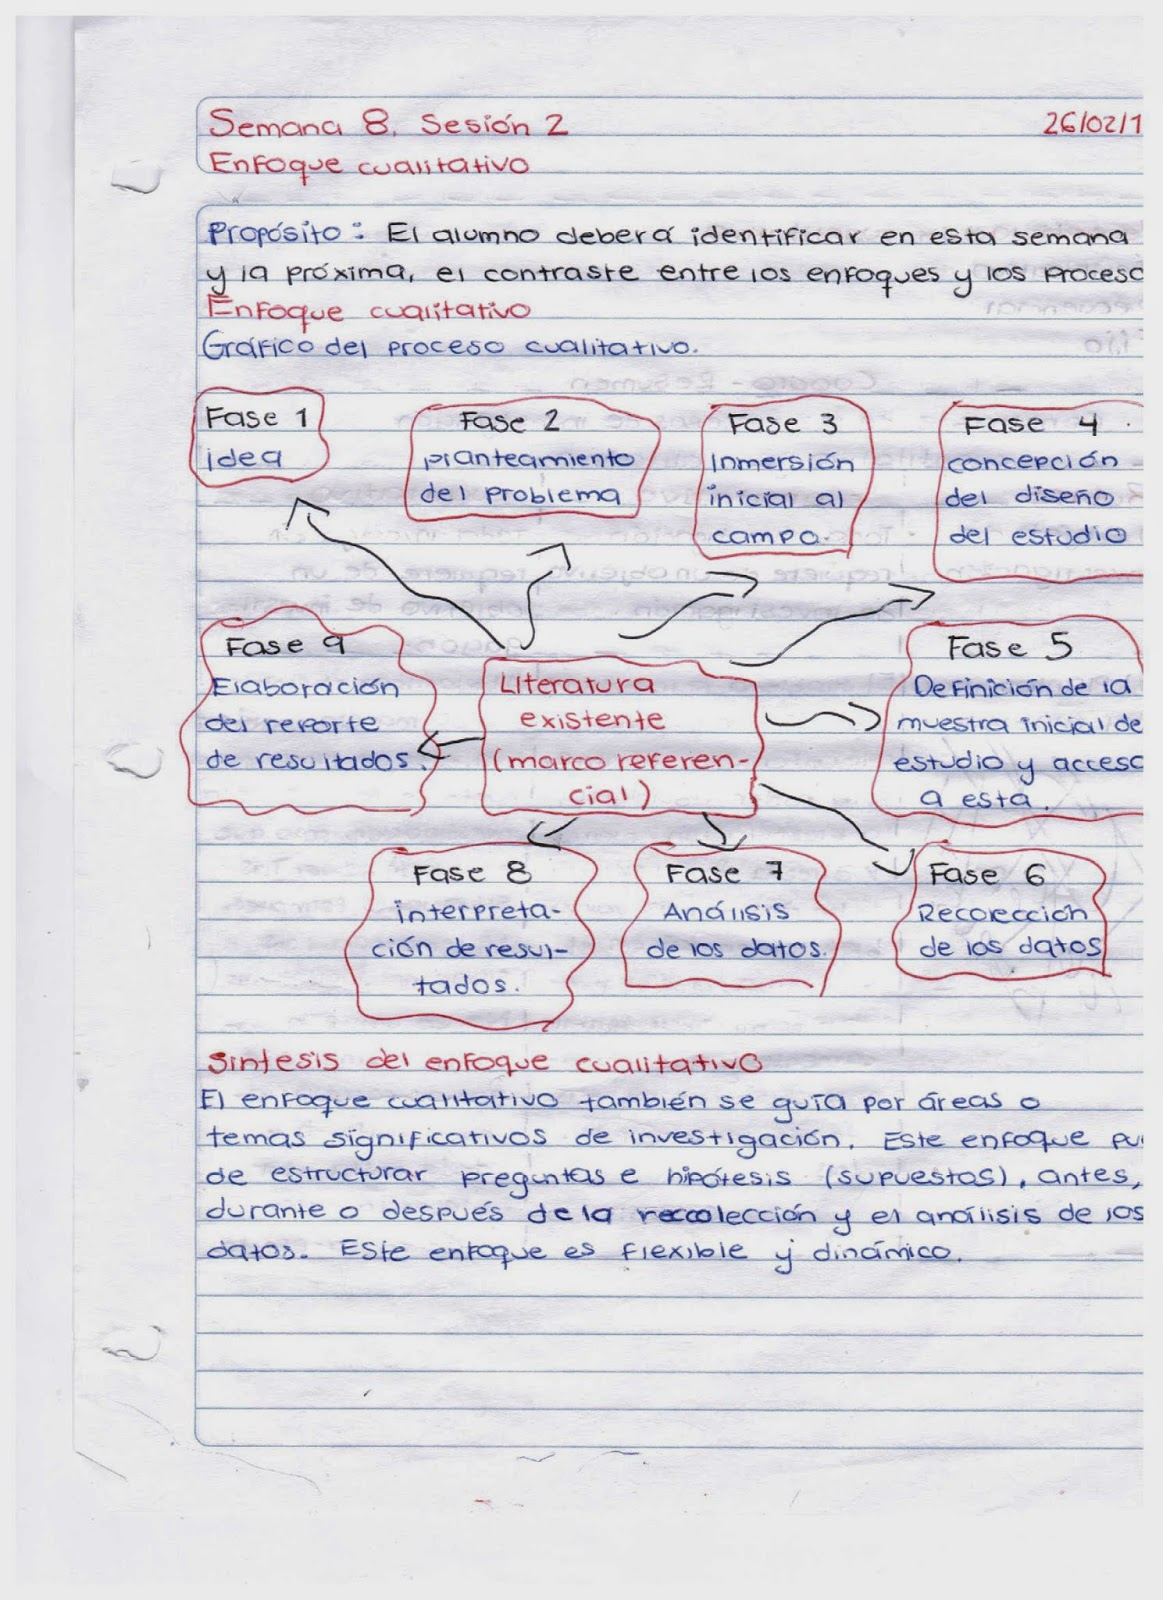 Semana 8. Sesión 2
26/02/1
Enfoque cualitativo
Propósito: El alumno deberá identificar en esta semana
y la próxima, el contraste entre los enfoques y los proceso
Enfoque cualitativo
Gráfico del proceso cualitativo.
Fase 1
idea
Fase 2
planteamiento
del problema
Fase 3
Inmersión
inicial al
campo.
Fase 4
concepción
del diseño
del estudio
Fase 9
Elaboración
del reporte
de resultados.
Literatura
existente
(marco referen-
cial)
Fase 5
Definición de la
muestra inicial de
estudio y acceso
a esta.
Fase 8
interpreta-
ción de resul-
tados.
Fase 7
Análisis
de los datos.
Fase 6
Recolección
de los datos
Sintesis del enfoque cualitativo
El enfoque cualitativo también se guía por áreas o
temas significativos de investigación. Este enfoque pu
de estructurar preguntas e hipótesis (supuestos), antes,
durante o después de la recolección y el análisis de los
datos. Este enfoque es flexible y dinámico.